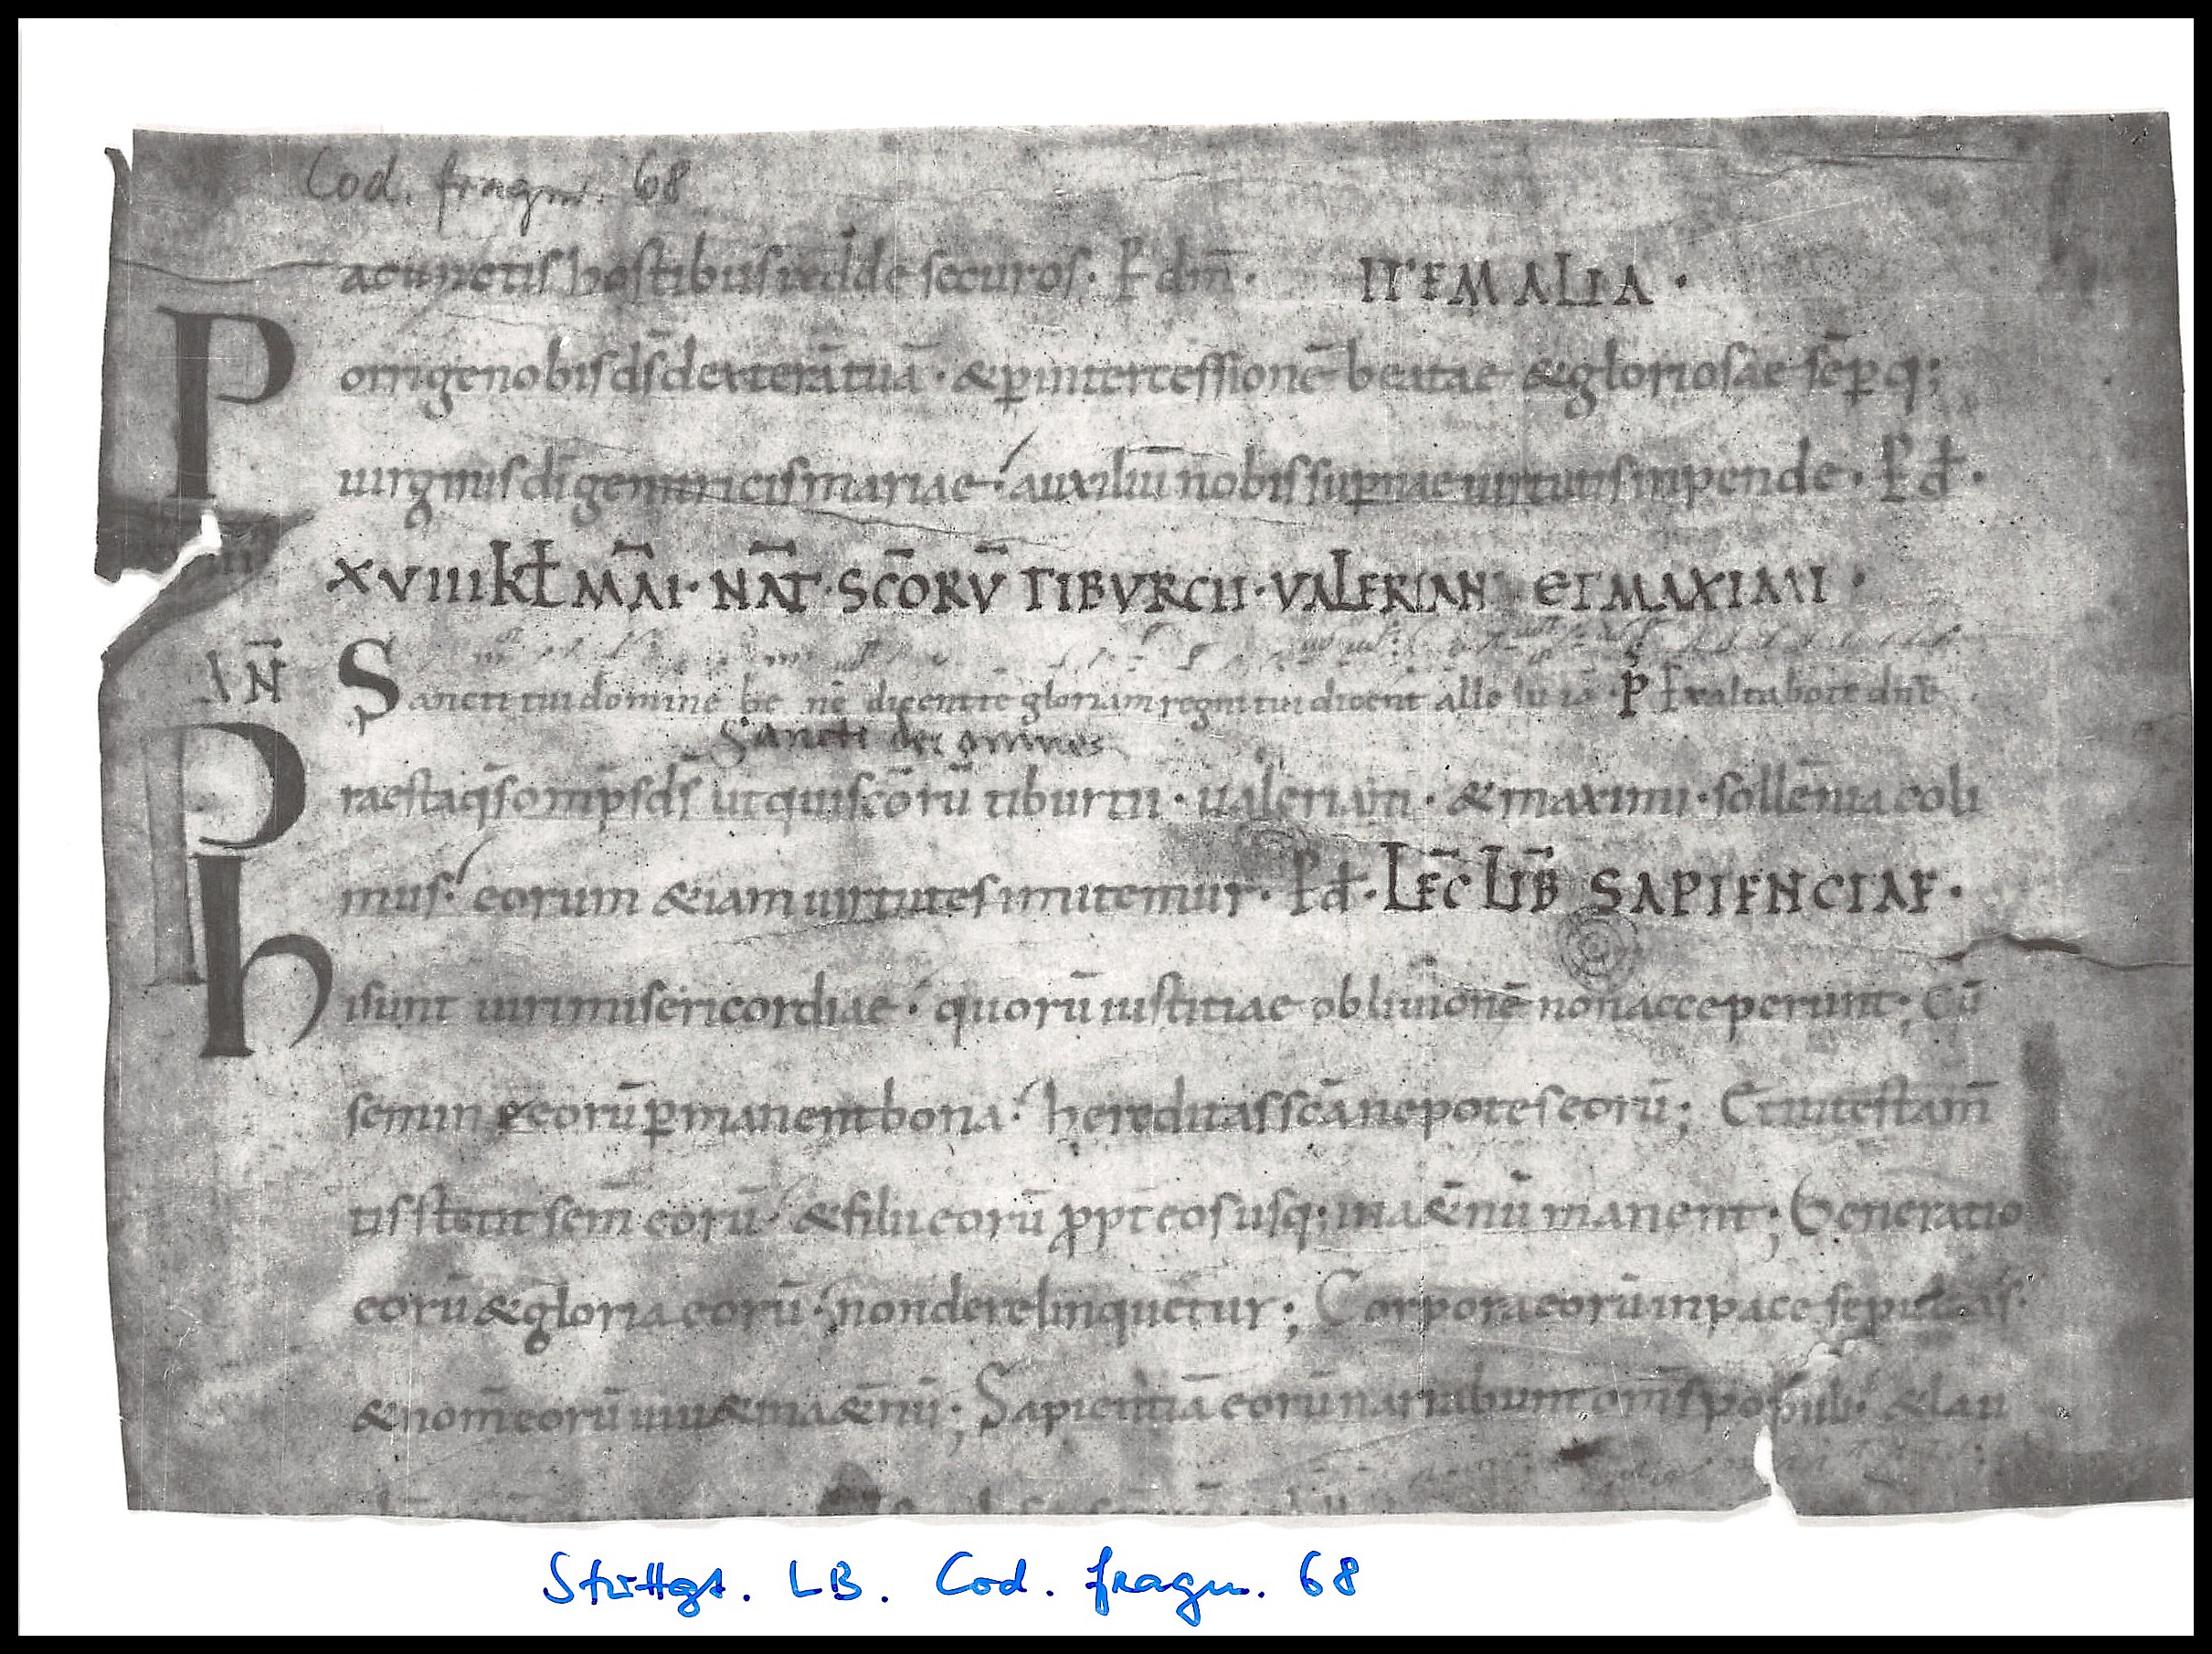 Cod. fragm. 68
acunctis hostibus redde securos · P dm̄ · ITEM ALIA ·
Porrige nobis ds̄ dexterā tuā · & p̱ intercessionē beatae & gloriosae sēp̱q;
uirginis dī genitricis mariae · auxiliū nobis sup̱nae uirtutis inpende · P d ·
XVIII KL MĀI · NĀT · SC̄ORV̄ TIBVRCII · VALERIAN ET MAXIMI ·
AN̄ Sancti tui domine be ne dicent te gloriam regni tui dicent alle lu ia · P Exaltabo te dn̄e
Sancti dei omnes
Praesta qs̄ omp̄s ds̄ ut qui sc̄orū tiburtii · ualeriani · & maximi · sollēnia coli
mus · eorum &iam uirtutes imitemur · P d · LEC̄ LIB̄ SAPIENCIAE ·
hi sunt uiri misericordiae · quorū iustitiae obliuionē non acceperunt ; Cū
semine eorū p̱manent bona · hereditas sc̄a nepotes eorū ; Et in testam̄
tis stetit sem̄ eorū · & filii eorū ꝓpt̄ eos usq; in a&̄nū manent ; Generatio
eorū & gloria eorū · non derelinquetur ; Corpora eorū in pace
& nom̄ eorū uiu& in a&̄nū ; Sapientiā eorū narrabunt om̄s populi · & lau
Stuttgt. LB. Cod. fragm. 68